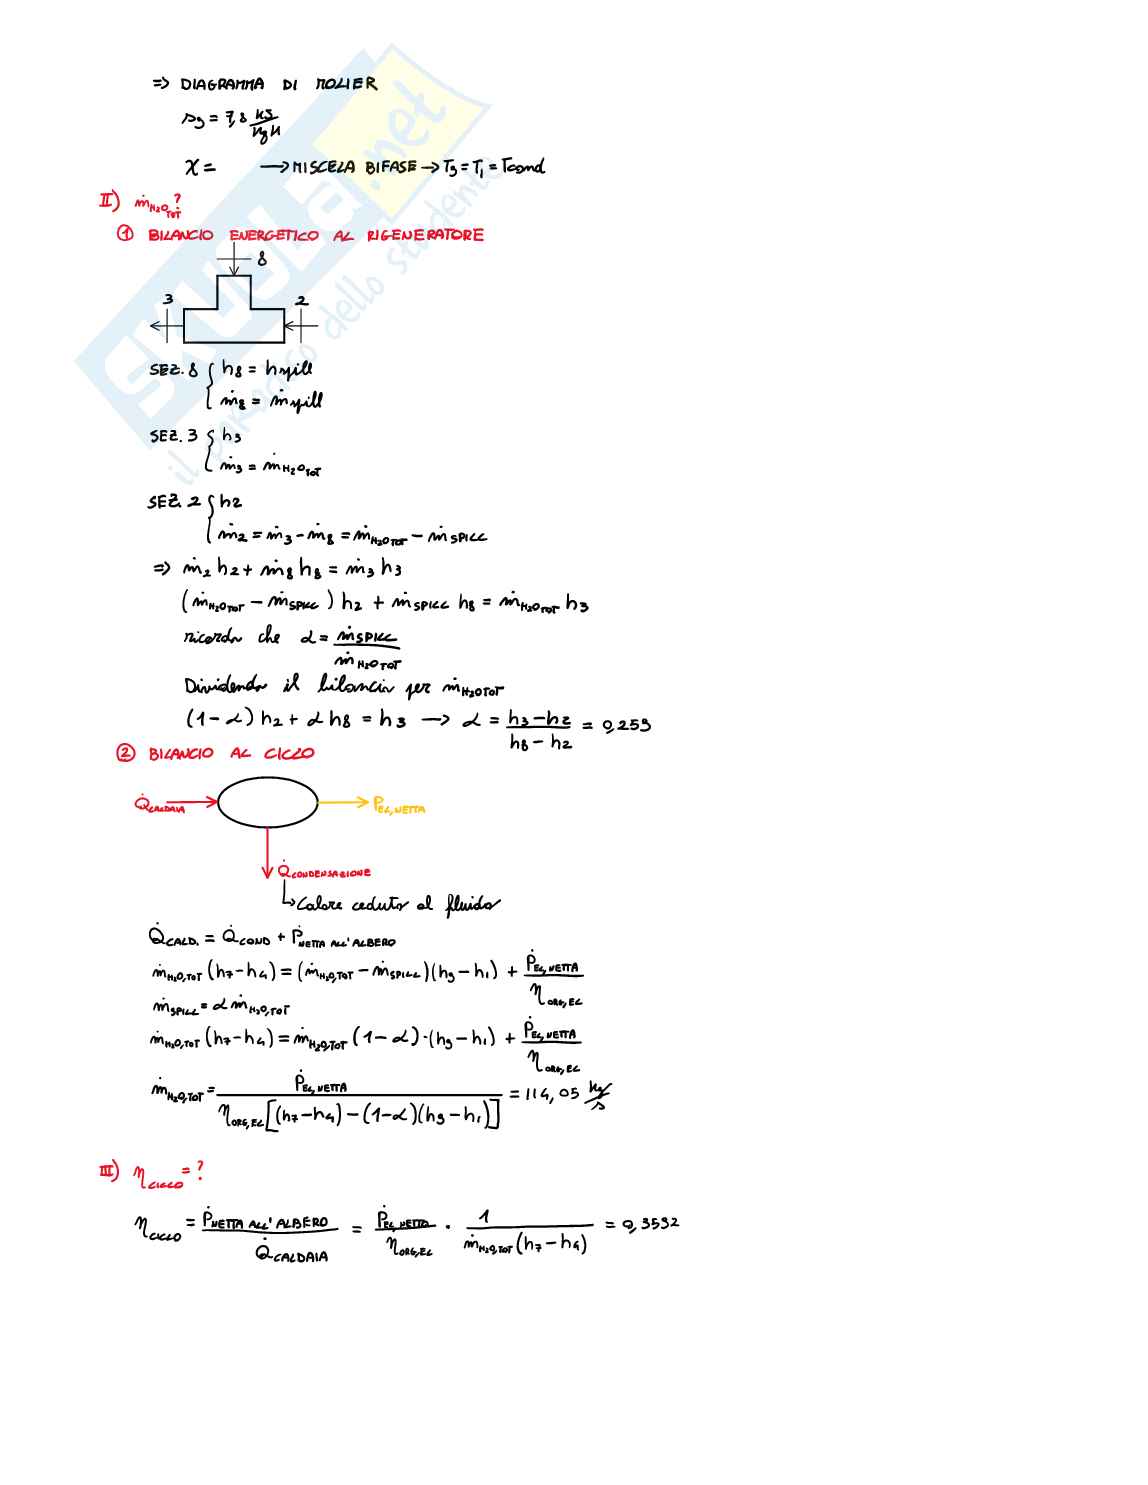 => DIAGRAMMA DI MOLIER
s9 = 7,8 kJ/kgK
X = → MISCELA BIFASE → T9 = T1 = Tcond
II) ṁH2O,TOT ?
① BILANCIO ENERGETICO AL RIGENERATORE
8
3 2
SEZ. 8 { h8 = hspill
ṁ8 = ṁspill
SEZ. 3 { h3
ṁ3 = ṁH2O TOT
SEZ. 2 { h2
ṁ2 = ṁ3 - ṁ8 = ṁH2O TOT - ṁSPILL
=> ṁ2 h2 + ṁ8 h8 = ṁ3 h3
(ṁH2O TOT - ṁSPILL) h2 + ṁSPILL h8 = ṁH2O TOT h3
ricorda che α = ṁSPILL / ṁH2O TOT
Dividendo il bilancio per ṁH2O TOT
(1-α) h2 + α h8 = h3 → α = (h3-h2) / (h8-h2) = 0,259
② BILANCIO AL CICLO
Q̇CALDAIA → PEL,NETTA
Q̇CONDENSAZIONE
↳ Calore ceduto al fluido
Q̇CALD. = Q̇COND + ṖNETTA ALL'ALBERO
ṁH2O,TOT (h7-h4) = (ṁH2O,TOT - ṁSPILL)(h9-h1) + ṖEL,NETTA / ηORG,EL
ṁSPILL = α ṁH2O,TOT
ṁH2O,TOT (h7-h4) = ṁH2O,TOT (1-α)·(h9-h1) + ṖEL,NETTA / ηORG,EL
ṁH2O,TOT = ṖEL,NETTA / ηORG,EL [(h7-h4)-(1-α)(h9-h1)] = 114,05 kg/s
III) ηCICLO = ?
ηCICLO = ṖNETTA ALL'ALBERO / Q̇CALDAIA = ṖEL,NETTA / ηORG,EL · 1 / ṁH2O,TOT (h7-h4) = 0,3532
SKUOLA.net
il paradiso dello studente